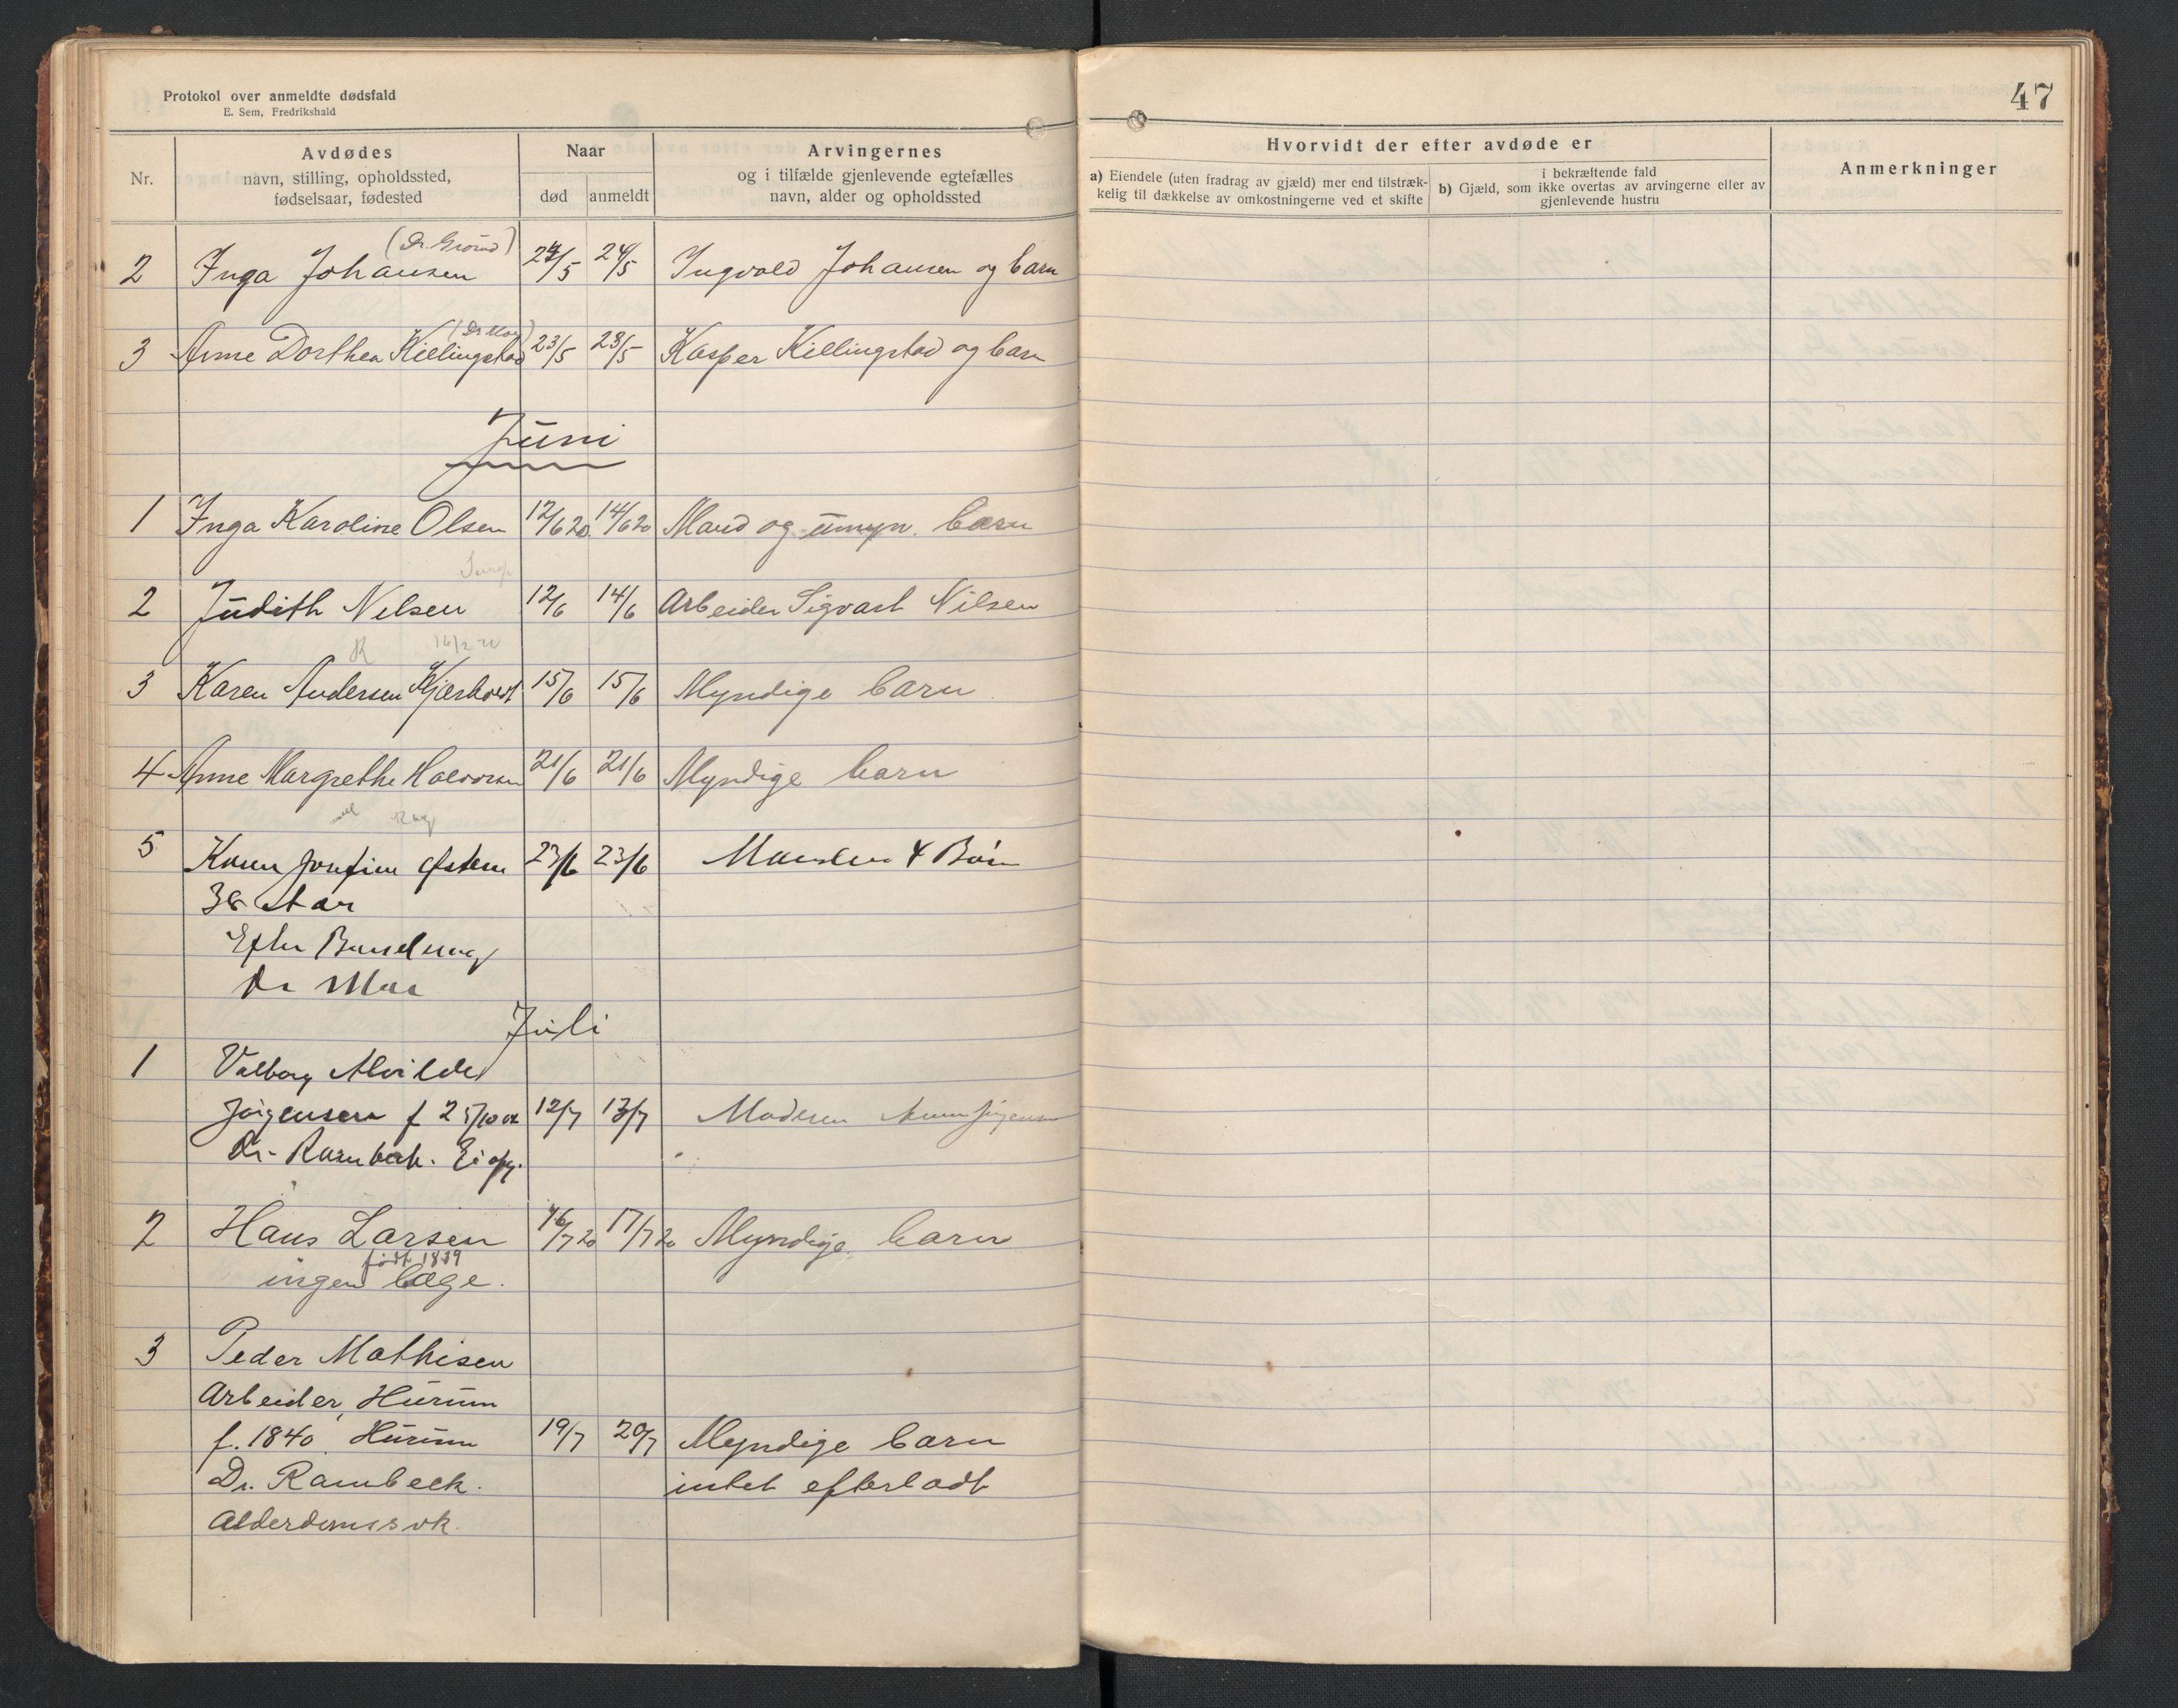 Protokol over anmeldte dødsfald
E. Sem, Fredrikshald
Nr.
Avdødes
navn, stilling, opholdssted,
fødselsaar, fødested
Naar
død anmeldt
Arvingernes
og i tilfælde gjenlevende egtefælles
navn, alder og opholdssted
(Dr. Grønd)
2 Inga Johansen 24/5 24/5 Ingvald Johansen og barn
3 Anne Dorthea Killingstad 23/5 28/5 Kasper Killingstad og barn
Juni
1 Inga Karoline Olsen 12/6 20. 14/6 20 Mand og umyn. barn
2 Judith Nilsen 12/6 14/6 Arbeider Sigvart Nilsen
3 Karen Andersen 15/6 15/6 Myndige barn
4 Anne Margrethe Halvorsen 21/6 21/6 Myndige barn
5 Karen 23/6 23/6 Manden 4 Børn
38 Aar
Efter
Dr
Juli
1 Valborg Alvilde
Jørgensen f 25/10 12/7 13/7 Moderen Jørgensen
Dr. Rambeck.
2 Hans Larsen 16/7 20 17/7 20 Myndige barn
født
ingen læge.
3 Peder Mathisen
Arbeider, Hurum
f. 1840 Hurum 19/7 20/7 Myndige barn
Dr. Rambeck. intet efterladt
Alderdomssvk.
47
Hvorvidt der efter avdøde er
a) Eiendele (uten fradrag av gjæld) mer end tilstræk-
kelig til dækkelse av omkostningerne ved et skifte
i bekræftende fald
b) Gjæld, som ikke overtas av arvingerne eller av
gjenlevende hustru
Anmerkninger